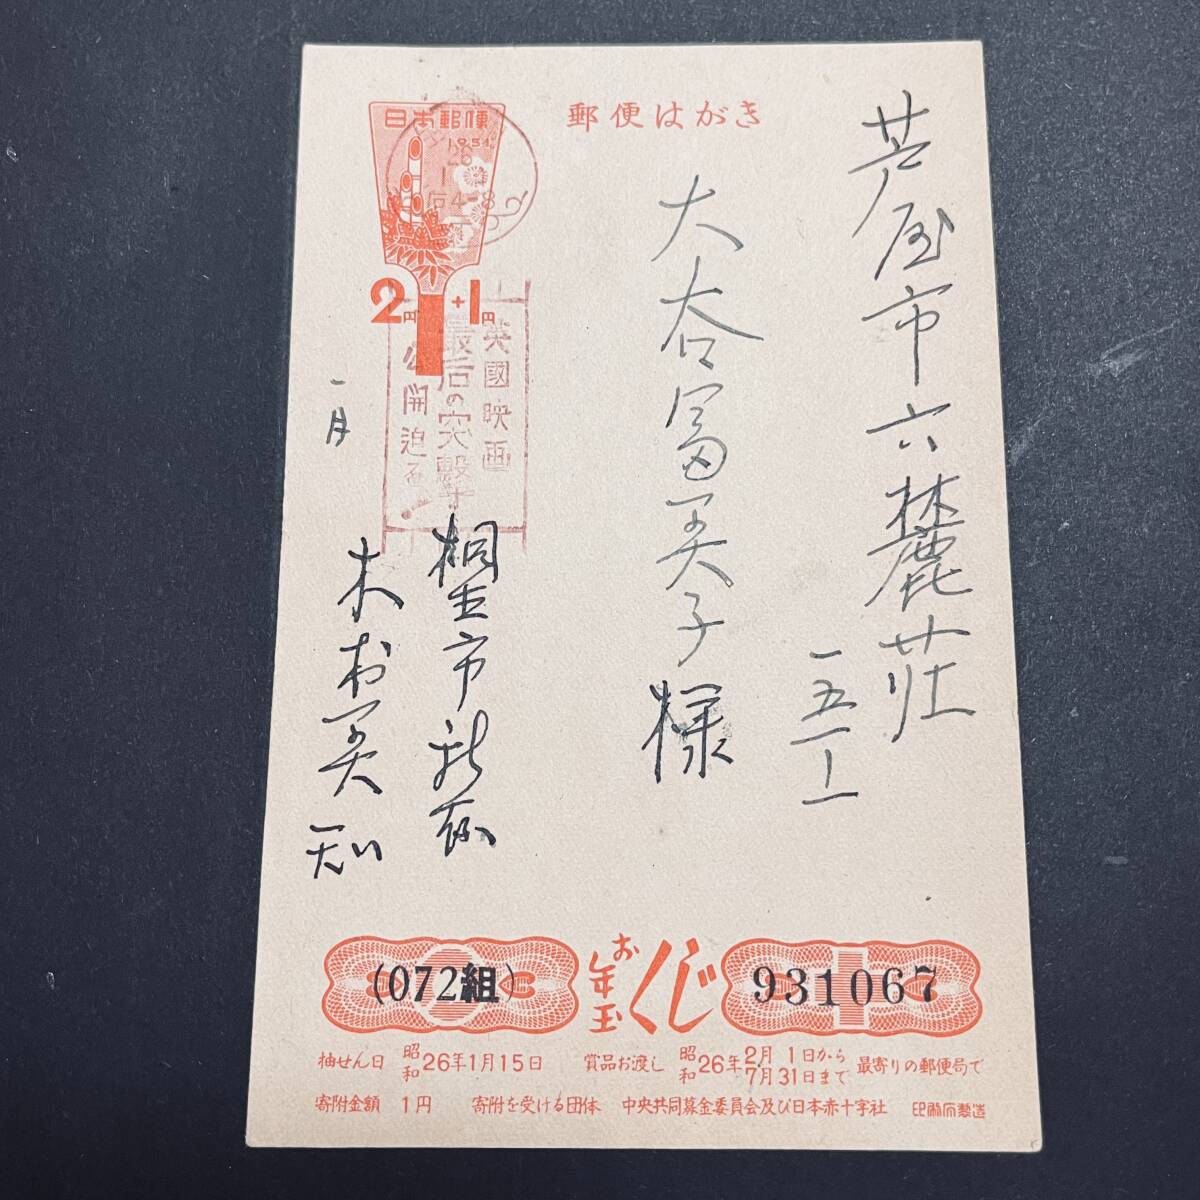 郵便はがき
日本郵便
1951
26
1
后4-8
2円+1円
英國映画
最后の突撃
公開迫る!
芦屋市六麓荘
一五一一
大谷冨美子様
一月
桐生市
木村美知
(072組)
お年玉くじ
931067
抽せん日 昭和26年1月15日 賞品お渡し 昭和26年2月1日から7月31日まで 最寄りの郵便局で
寄附金額 1円 寄附を受ける団体 中央共同募金委員会及び日本赤十字社 印刷庁製造